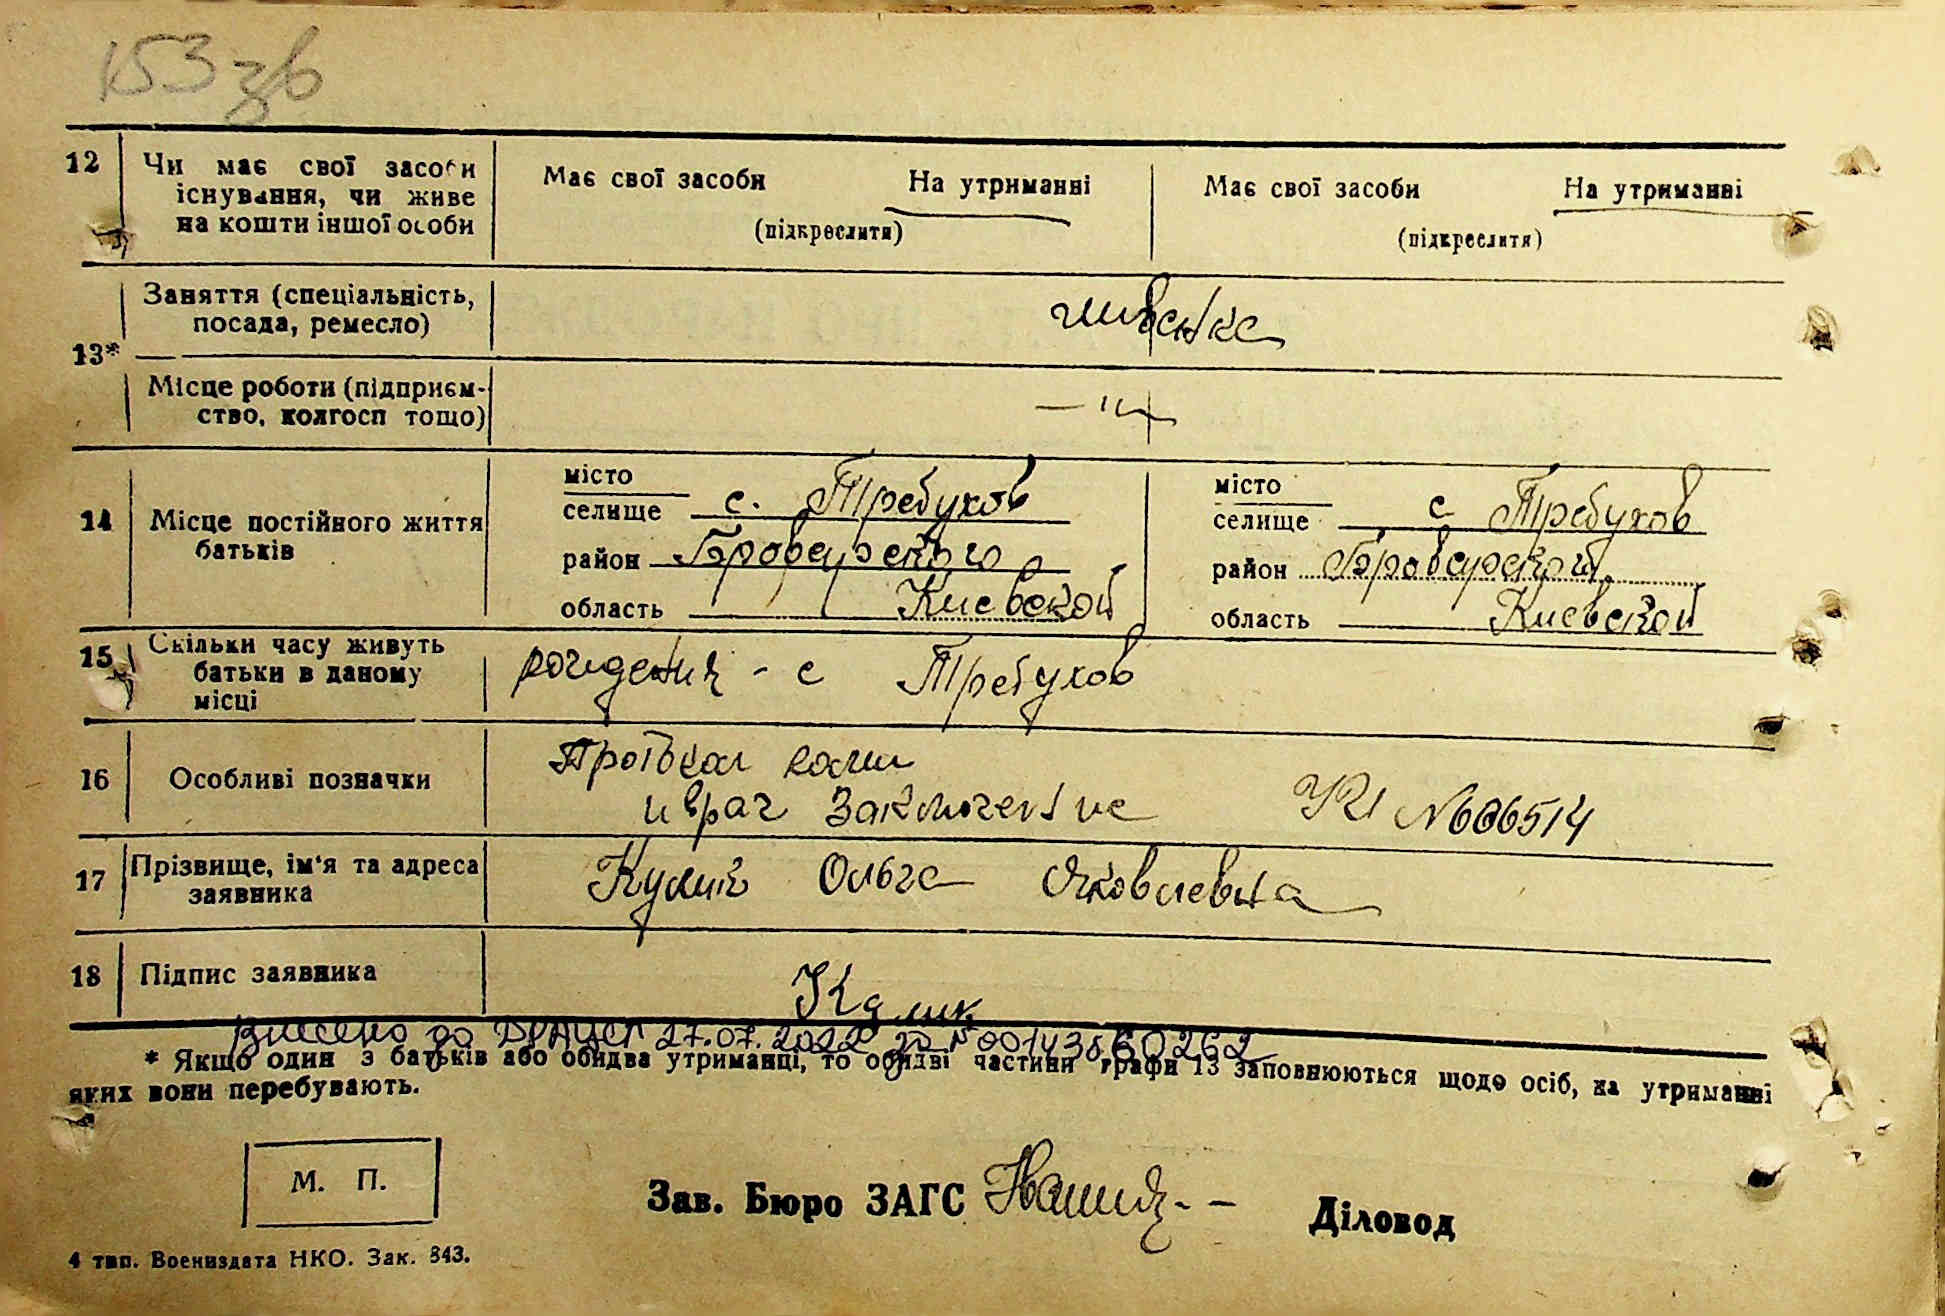 153 зв
12 Чи має свої засоби існування, чи живе на кошти іншої особи
Має свої засоби На утриманні
(підкреслити)
Має свої засоби На утриманні
(підкреслити)
13* Заняття (спеціальність,
посада, ремесло)
Місце роботи (підприєм-
ство, колгосп тощо)
— " —
14 Місце постійного життя
батьків
місто
селище с. Требухов
район Броварского
область Киевской
місто
селище с Требухов
район Броварской
область Киевской
15 Скільки часу живуть
батьки в даному
місці
рождения - с Требухов
16 Особливі позначки
Протокол
и врач заключение
№606514
17 Прізвище, ім'я та адреса
заявника
Кулик Ольга Яковлевна
18 Підпис заявника
Кулик
Внесено до ДРАЦСГ 27.07.2022 за №
* Якщо один з батьків або обидва утриманці, то обидві частини графи 13 заповнюються щодо осіб, на утриманні
яких вони перебувають.
М. П.
Зав. Бюро ЗАГС
Діловод
4 тип. Воениздата НКО. Зак. 843.